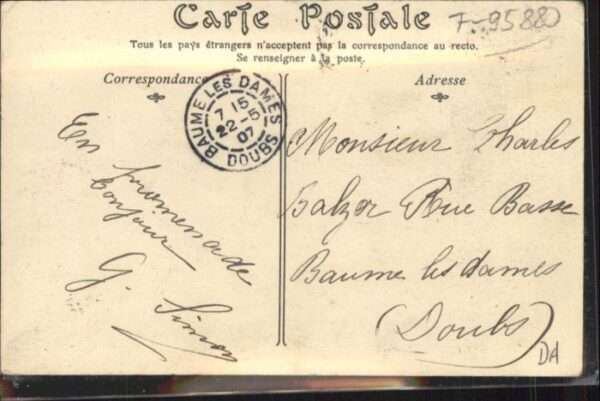 Carte Postale
F-95880
Tous les pays étrangers n'acceptent pas la correspondance au recto.
Se renseigner à la poste.
Correspondance
Adresse
BAUME LES DAMES
7 15
22-5
07
DOUBS
En promenade
bonjour
G. Simon
Monsieur Charles
Balzer Rue Basse
Baume les dames
(Doubs)
DA